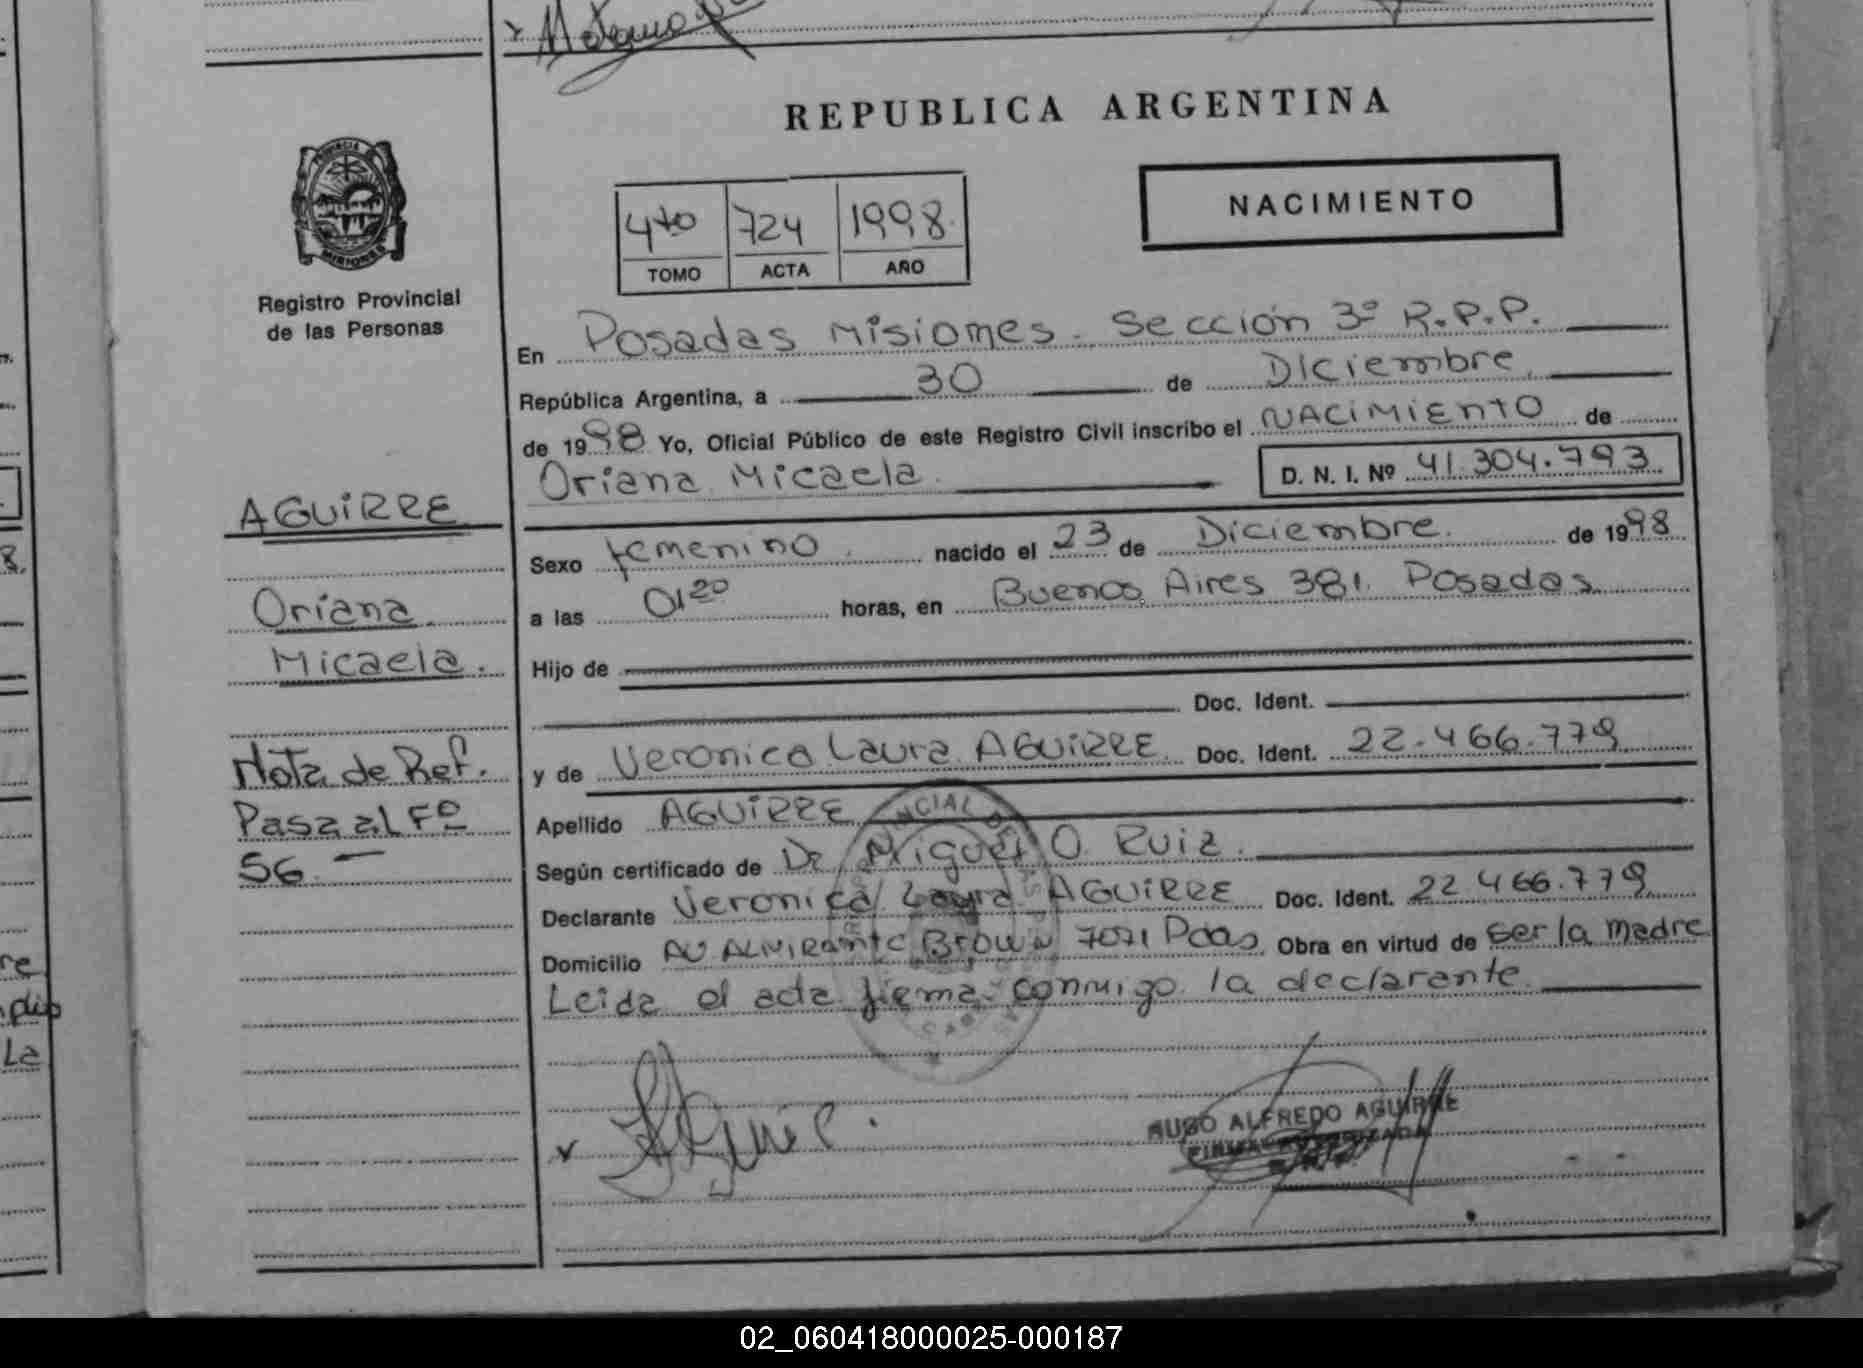 REPUBLICA ARGENTINA
NACIMIENTO
4to 724 1998.
TOMO ACTA AÑO
PROVINCIA DE
MISIONES
Registro Provincial
de las Personas
En Posadas Misiones. Sección 3º R.P.P.
República Argentina, a 30 de Diciembre
de 1998 Yo, Oficial Público de este Registro Civil inscribo el NACIMIENTO de
Oriana Micaela. D. N. I. Nº 41.304.793
AGUIRRE
Oriana
Micaela.
Sexo femenino. nacido el 23 de Diciembre. de 1998
a las 01 20 horas, en Buenos Aires 381. Posadas
Hijo de
Doc. Ident.
y de Veronica Laura AGUIRRE Doc. Ident. 22.466.779
Nota de Ref.
Pasa al Fº
56.
Apellido AGUIRRE
Según certificado de Dr Miguel O. Ruiz.
Declarante Veronica Laura AGUIRRE Doc. Ident. 22.466.779
Domicilio AV ALMIRANTE Brown 7071 Pdas Obra en virtud de ser la madre
Leida el acta firma conmigo la declarante
HUGO ALFREDO AGUIRRE
FIRMA AUTORIZADA
02_060418000025-000187